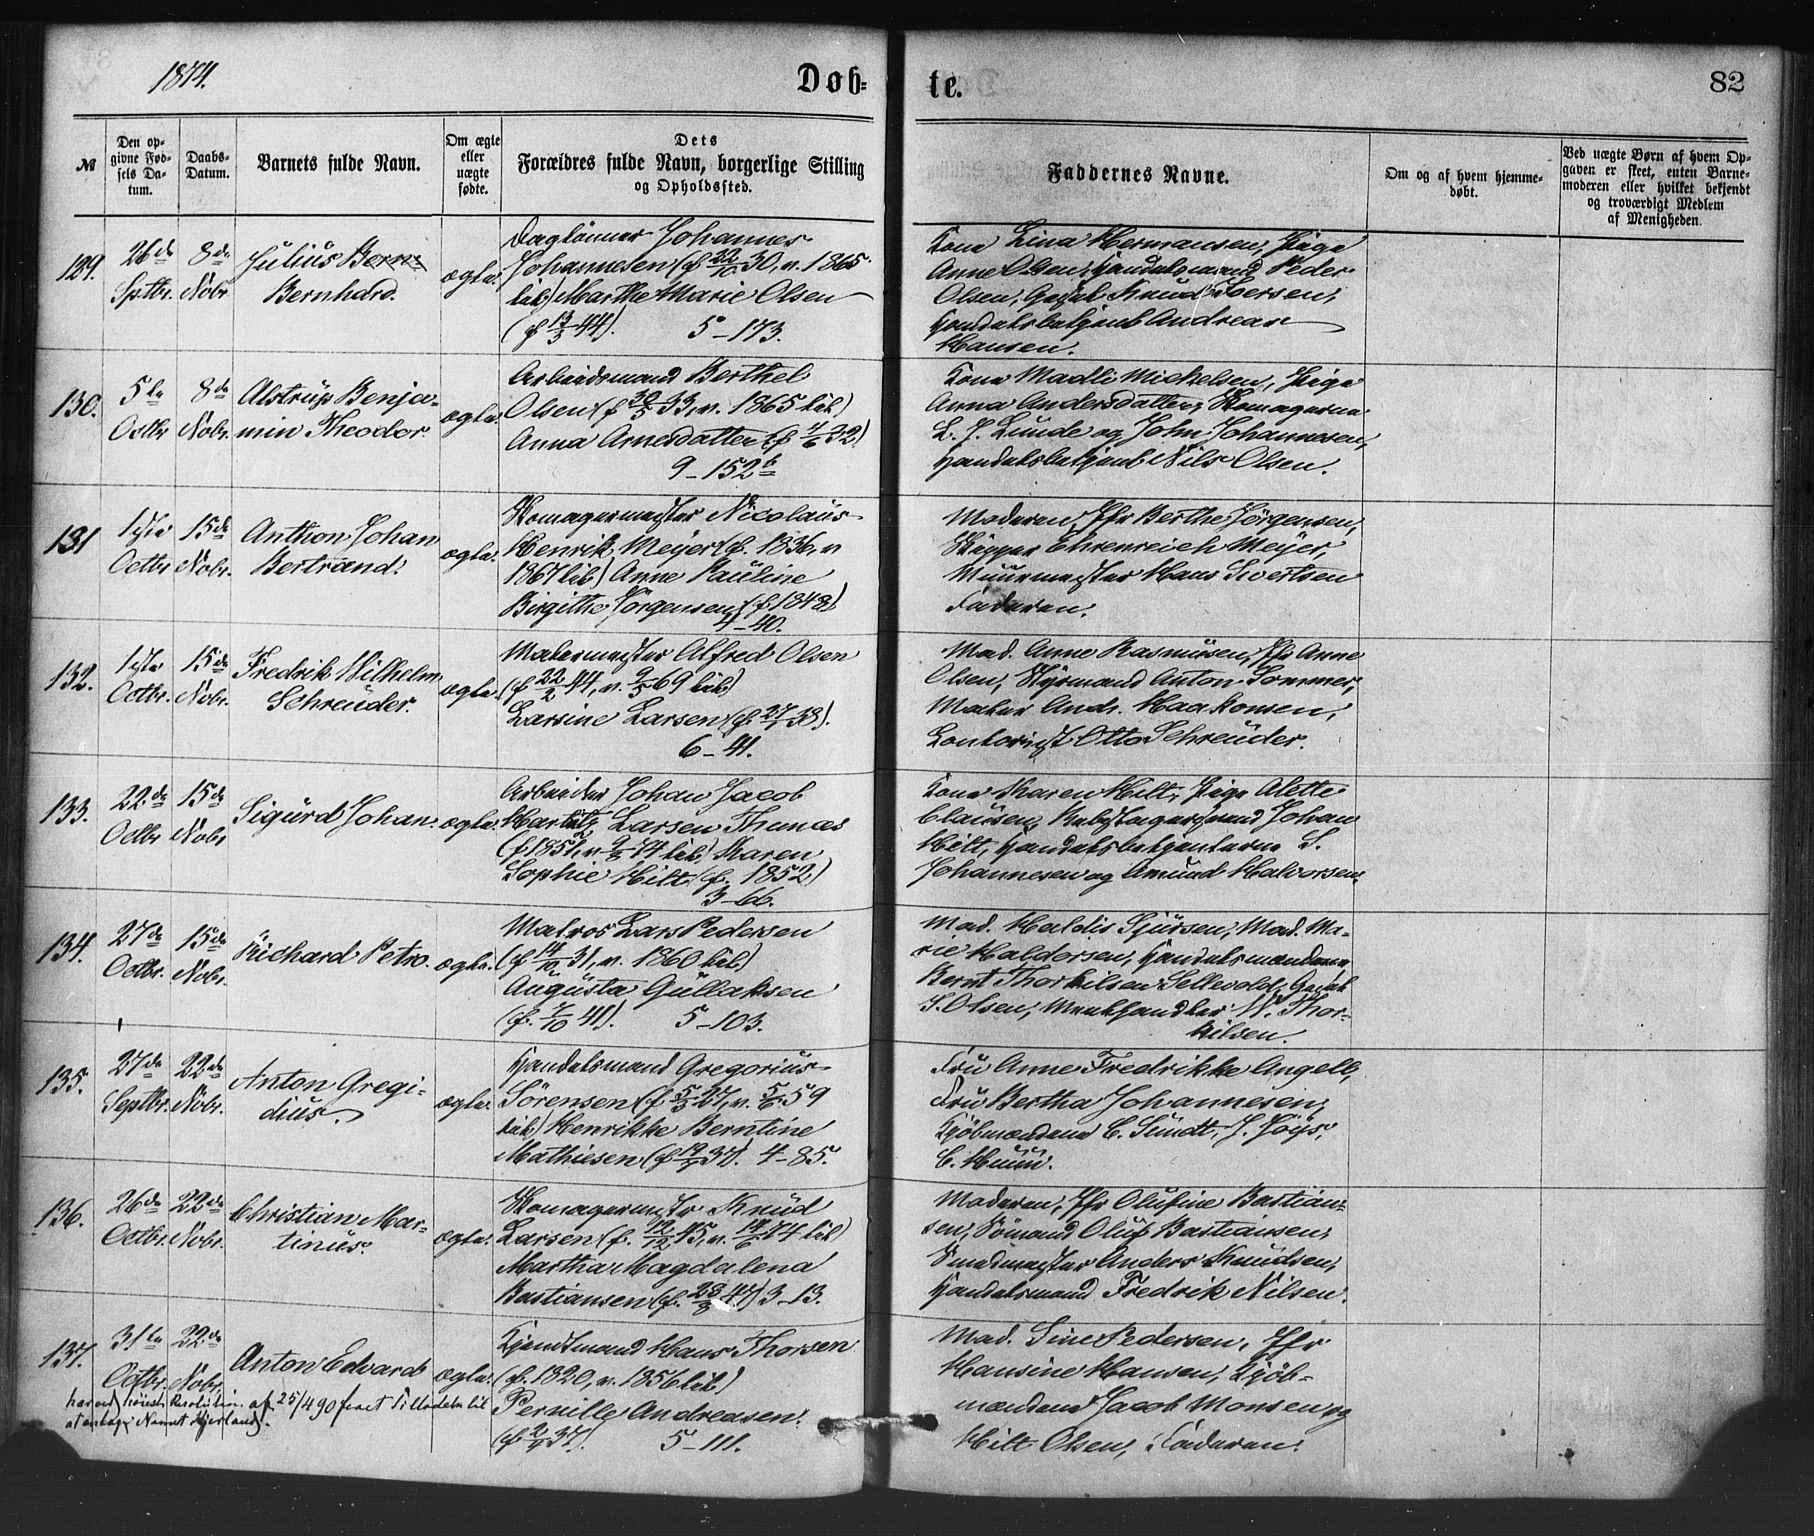 1874.
Døb=
te.
82
№
Den op-
givne Fød-
sels Da-
tum.
Daabs-
Datum.
Barnets fulde Navn.
Om ægte
eller
uægte
fødte.
Dets
Forældres fulde Navn, borgerlige Stilling
og Opholdssted.
Faddernes Navne.
Om og af hvem hjemme-
døbt.
Ved uægte Børn af hvem Op-
gaven er skeet, enten Barne-
moderen eller hvilket bekjendt
og troværdigt Medlem
af Menigheden.
129.
26de
Sptbr.
8de
Nobr
Julius Bern=
Bernhard.
ægte.
Daglönner Johannes
Johannesen (f 22/10 30, v. 1865
bib) Marthe Marie Olsen
(f 13/3 44). 5-173.
Kone Lina Hermansen, Pige
Anne Olsen, Handelsmand Peder
Olsen, Gesel Knud Iversen,
Handelsbetjent Andreas
Hansen.
130.
5te
Octbr
8de
Nobr.
Alstrup Benja-
min Theodor.
ægte.
Arbeidsmand Berthel
Olsen (f 30/5 33, v. 1865 bib)
Anna Arnesdatter (f 4/6 32)
9-152b
Kone Madli Mickelsen, Pige
Anna Andersdatter, Skomagerne
L. J. Lunde og John Johannesen,
Handelsbetjent Nils Olsen.
131
1ste
Octbr
15de
Nobr.
Anthon Johan
Bertrand.
ægte.
Skomagermester Nicolaus
Henrik Meyer (f. 1836, v
1867 bib) Anne Pauline
Birgithe Jörgensen (f. 1848)
4-40.
Moderen, Jfr Berthe Jörgensen,
Skipper Ehrenreich Meyer,
Muurmester Hans Sivertsen
Faderen.
132.
1ste
Octbr.
15de
Nobr.
Fredrik Wilhelm
Schreuder.
ægte.
Malermester Alfred Olsen
(f 22/2 44, v. 9/5 69 bib)
Larsine Larsen (f. 27/1 38).
6-41.
Mad. Anne Rasmusen, Jfr Anne
Olsen, Styrmand Anton Sommer,
Maler Andr. Haakonsen,
Contorist Otto Schreuder.
133.
22de
Octbr
15de
Nobr
Sigurd Johan.
ægte.
Arbeider Johan Jacob
Larsen Thunæs
(f 1851, v. 9/3 74 bib) Karen
Sophie Hilt (f. 1852)
3-66.
Kone Karen Hilt, Pige Alette
Clausen, Rebslagersvend Johan
Hilt, Handelsbetjenterne S.
Johannesen og Amund Halvorsen.
134.
27de
Octbr.
15de
Nobr.
Richard Petro.
ægte.
Matros Lars Pedersen
(f 14/12 31, v. 1860 bib)
Augusta Gullaksen
(f. 7/10 41). 5-103.
Mad. Haldis Sjursen, Mad. Ma-
rie Haldorsen, Handelsmændene
Bernt Thorkilsen Sellevold, Gesel
S. Olsen, Meelhandler N. Thor-
kilsen.
135.
27de
Septbr.
22de
Nobr.
Anton Gregi-
dius.
ægte.
Handelsmand Gregorius
Sörensen (f 5/3 27, v. 5/6 59
bib) Henrikke Berntine
Mathiesen (f 19/7 37). 4-85.
Fru Anne Fredrikke Angell,
Fru Bertha Johannesen,
Kjöbmændene C. Sundt, J. Höys,
C. Huun.
136.
26de
Octbr.
22de
Nobr.
Christian Mar-
tinus.
ægte.
Skomagermestr Knud
Larsen (f. 12/12 45, v. 14/6 74 bib)
Martha Magdalena
Bastiansen (f. 28/8 47) 3-13.
Moderen, Jfr Olufine Bastian-
sen, Sömand Oluf Bastiansen,
Smedmester Anders Knudsen,
Handelsmand Fredrik Nilsen.
137.
31te
Octbr.
22de
Nobr.
Anton Edvard
ægte.
har ved Resolution af 25/4 90 faaet Tilladelse til
at antage Navnet Hjerland.
Hans Thorsen
(f. 1820, v. 1856 bib)
Pernille Andreasen.
(f 2/7 37). 5-111.
Mad. Sine Pedersen, Jfr
Hansine Hansen, Kjöb-
mændene Jacob Monsen og
Hilt Olsen, Faderen.